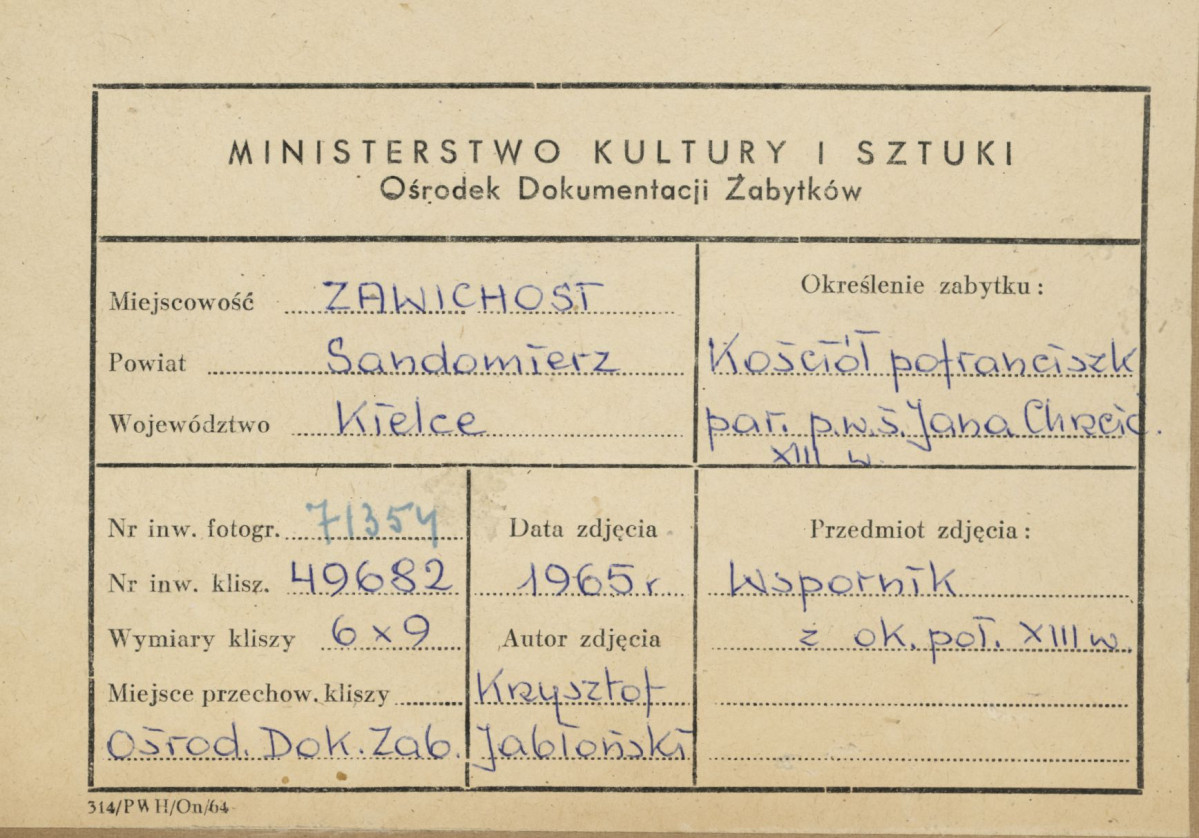 MINISTERSTWO KULTURY I SZTUKI
Ośrodek Dokumentacji Zabytków
Miejscowość ZAWICHOST
Powiat Sandomierz
Województwo Kielce
Określenie zabytku:
Kościół pofranciszk
par. p.w. ś. Jana Chrzcic.
XIII w.
Nr inw. fotogr. 71354
Nr inw. klisz. 49682
Wymiary kliszy 6 x 9
Miejsce przechow. kliszy
Ośrod. Dok. Zab.
Data zdjęcia
1965 r
Autor zdjęcia
Krzysztof
Jabłoński
Przedmiot zdjęcia:
Wspornik
z ok. poł. XIII w.
314/PWH/On/64